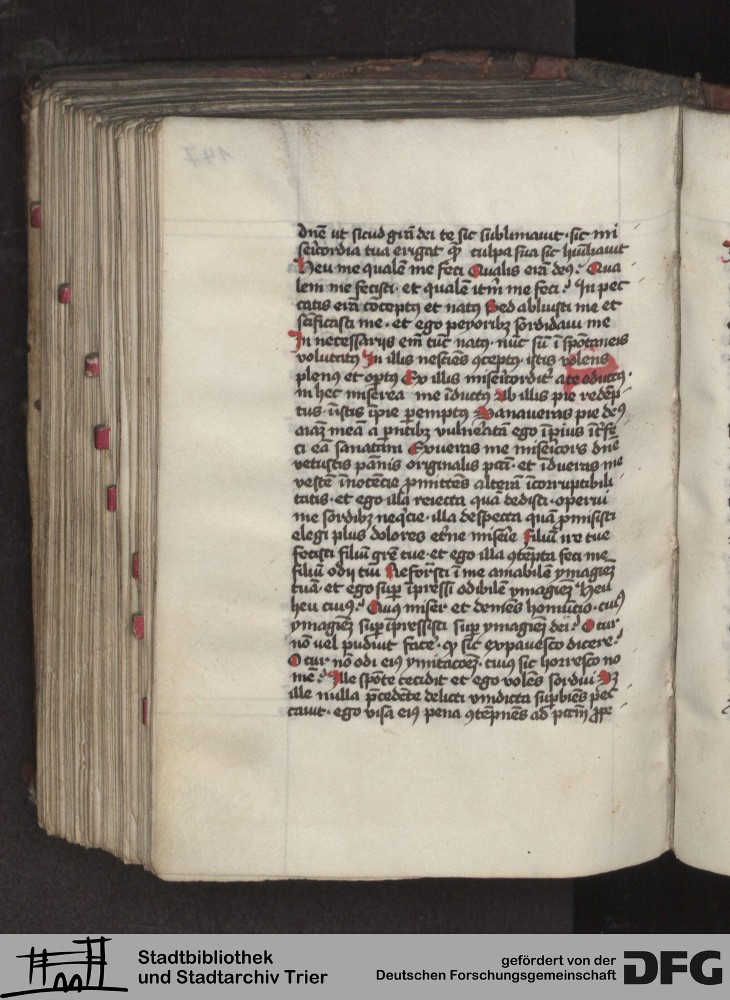 dnē ut sicud grā dei te sic sublimauit · sic mi
sericordia tua erigat culpa sua sic huīliauit
Heu me qualē me feci Qualis erā deꝰ? Qua
lem me fecisti · et qualē itm̄ me feci? In pec
catis erā cōceptꝰ et natꝰ Sed abluisti me et
scīficasti me · et ego peyoribꝫ sordidaui me
In necessarijs em̄ tūc natꝰ · nūc sū ī spōtaneis
volutatꝰ In illis nesciēs ꝯceptꝰ · istis volens
plenꝰ et optꝰ Ex illis misericordit᷑ a te eductꝰ ·
in hec miserea me īductꝰ Ab illis pie redēp
tus · īistis īpie pemptꝰ Sanaueras pie deꝰ
aīaꝫ meā a pntībꝫ vulneratā ego īpius īt᷑fe
ci eā sanatam Exueras me misericors dne
vetustis pānis originalis pcti · et īdueras me
vestē īnocēcie promittēs alterā īcorruptibili
tatis · et ego illa reiecta quā dedisti · operui
me sordibꝫ neqcie · illa despecta quā pmisisti
elegi plus dolores etne miserie Filiū ire tue
fecisti filiū gre tue · et ego illa ꝯtēpta feci me
filiū odii tui Reformasti ī me amabilē ymagiez
tuā · et ego sup īpressi odibilē ymagiez Heu
heu cuiꝰ? Cuiꝰ miser et demēs homūcio · cuiꝰ
ymagiez sup īpressisti sup ymagiez dei? O cur
nō vel puduit face · sic expauesco dicere?
O cur nō odi eiꝰ ymitacoēz · cuiꝰ sic horresco no
mē? Ille spōte cecidit et ego volēs sordui Sꝫ
ille nulla pcedēte delicti vindicta supbiēs pec
cauit · ego visa eiꝰ pena ꝯtēpnēs ad pctm̄
147
Stadtbibliothek
und Stadtarchiv Trier
gefördert von der
Deutschen Forschungsgemeinschaft
DFG